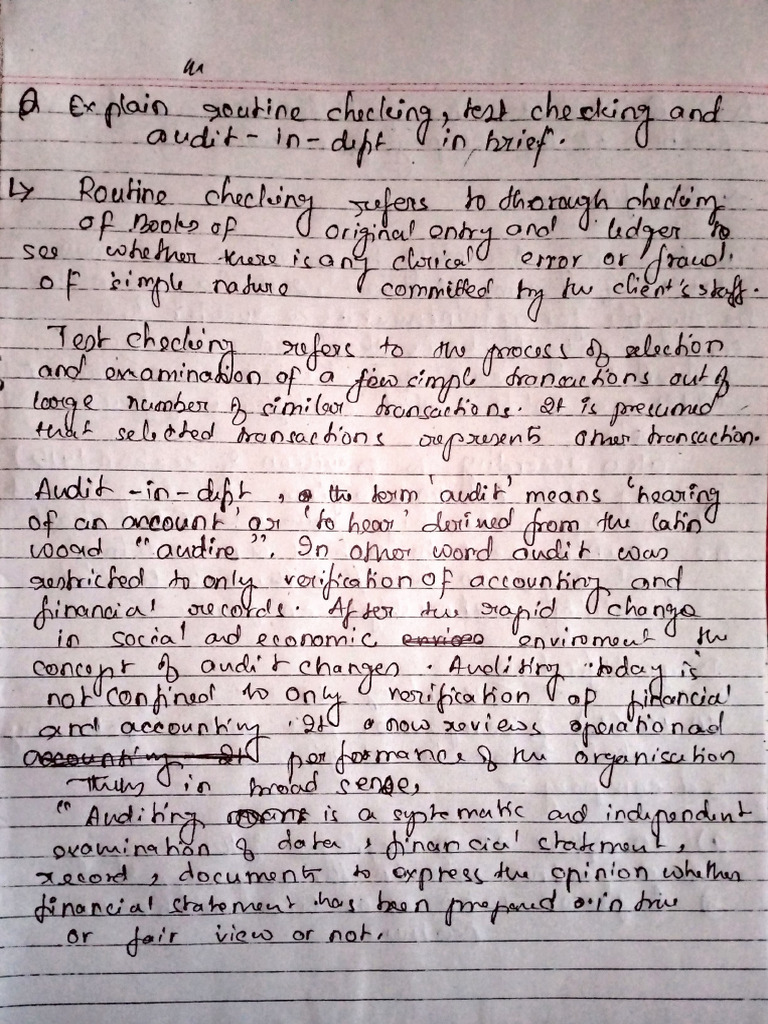 Q Explain routine checking, test checking and
audit-in-dept in brief.
↳ Routine checking refers to thorough checking
of Books of original entry and ledger to
see whether there is any clerical error or fraud
of simple nature committed by the client's staff.
Test checking refers to the process of selection
and examination of a few simple transactions out of
large number of similar transactions. It is presumed
that selected transactions represents other transaction.
Audit-in-dept, the term 'audit' means 'hearing
of an account' or 'to hear' derived from the latin
word "audire". In other word audit was
restricted to only verification of accounting and
financial records. After the rapid change
in social and economic enviroment the
concept of audit changes. Auditing today is
not confined to only verification of financial
and accounting. It now reviews operational
performance of the organisation
Thus in broad sense,
"Auditing is a systematic and independent
examination of data, financial statement,
record, documents to express the opinion whether
financial statement has been prepared in true
or fair view or not.